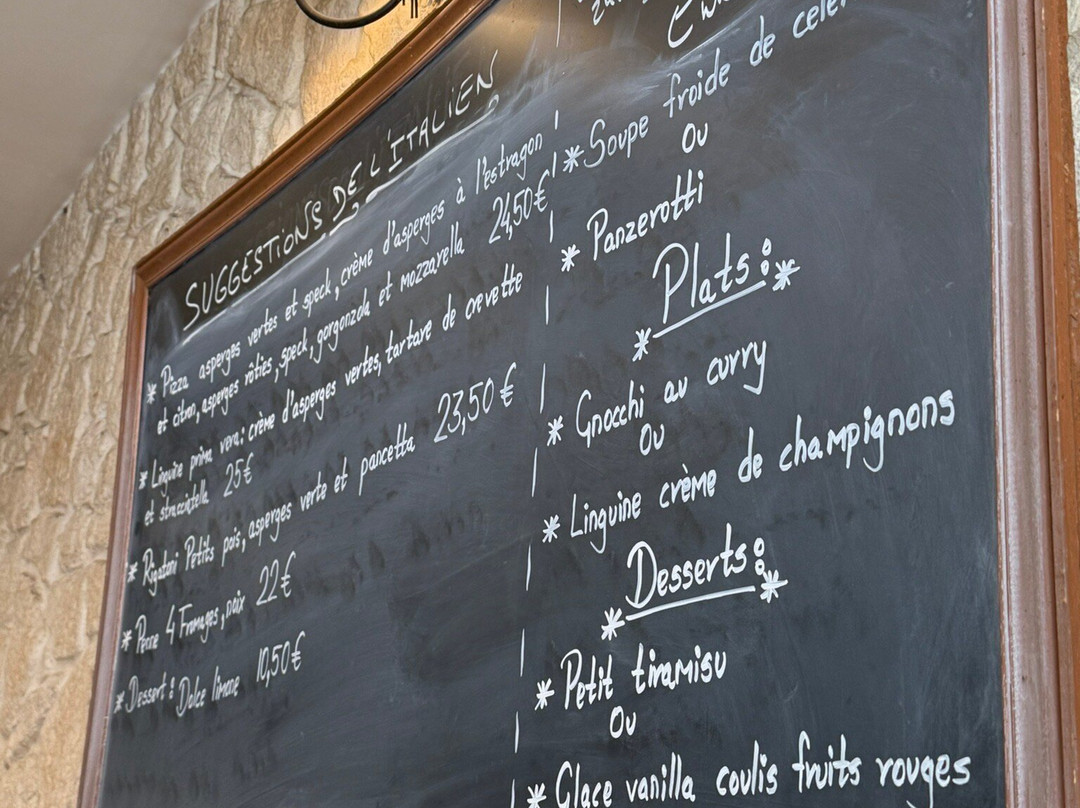 SUGGESTIONS DE L'ITALIEN
* Pizza asperges vertes et speck, crème d'asperges à l'estragon
et citron, asperges rôties, speck, gorgonzola et mozzarella 24,50€
* Linguine prima vera: crème d'asperges vertes, tartare de crevette
et stracciatella 25€
* Rigatoni Petits pois, asperges verte et pancetta 23,50€
* Penne 4 Fromages, noix 22€
* Dessert: Dolce limone 10,50€
* Soupe froide de céleri
Ou
* Panzerotti
* Plats: *
* Gnocchi au curry
Ou
* Linguine crème de champignons
* Desserts: *
* Petit tiramisu
Ou
* Glace vanilla coulis fruits rouges